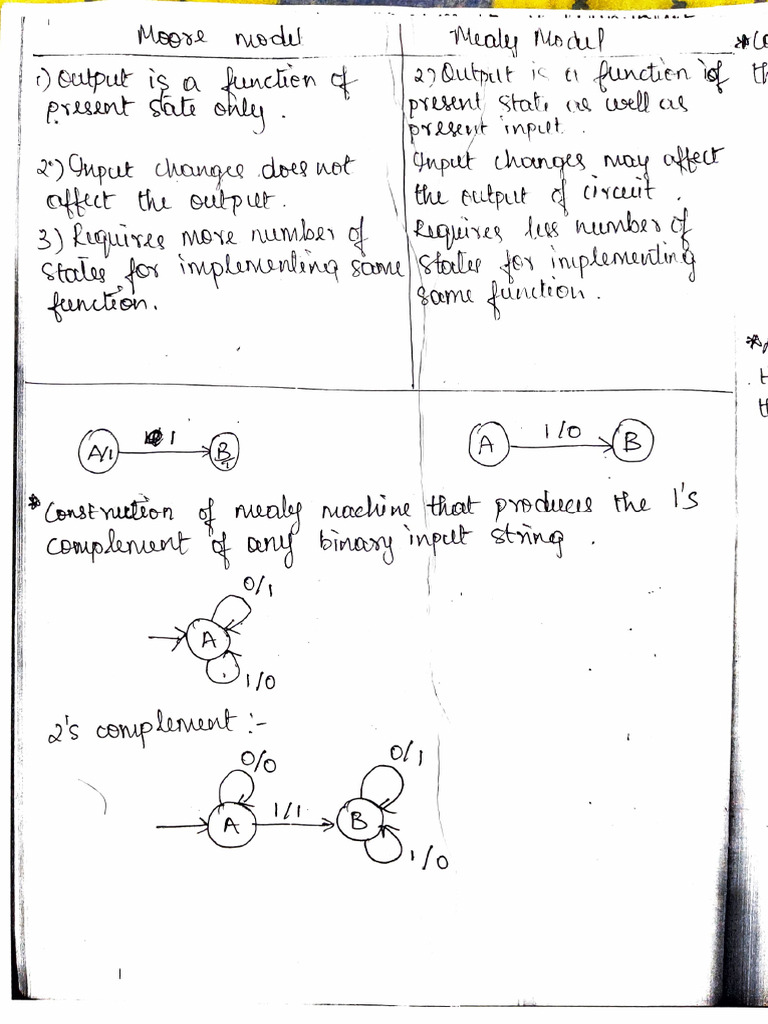 Moore model
Mealy Model
1) Output is a function of
present state only.
2) Output is a function of
present state as well as
present input.
2.) Input changes does not
affect the output.
Input changes may affect
the output of circuit.
3) Requires more number of
states for implementing same
function.
Requires less number of
states for implementing
same function.
A/1
1
B/1
A
1/0
B
* Construction of mealy machine that produces the 1's
complement of any binary input string.
0/1
A
1/0
2's complement :-
0/0
0/1
A
1/1
B
1/0